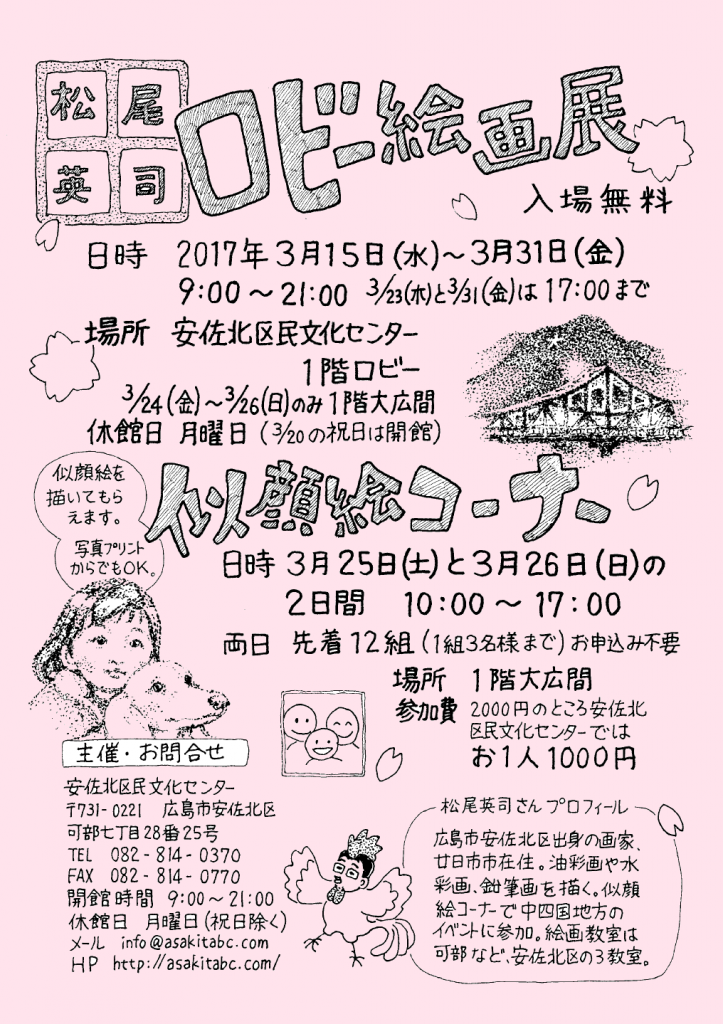 松尾
英司
ロビー絵画展
入場無料
日時 2017年3月15日(水)～3月31日(金)
9:00～21:00 3/23(木)と3/31(金)は17:00まで
場所 安佐北区民文化センター
1階ロビー
3/24(金)～3/26(日)のみ1階大広間
休館日 月曜日(3/20の祝日は開館)
似顔絵を
描いてもら
えます。
写真プリント
からでもOK。
似顔絵コーナー
日時 3月25日(土)と3月26日(日)の
2日間 10:00～17:00
両日 先着12組(1組3名様まで)お申込み不要
場所 1階大広間
参加費 2000円のところ安佐北
区民文化センターでは
お1人1000円
主催・お問合せ
安佐北区民文化センター
〒731-0221 広島市安佐北区
可部七丁目28番25号
TEL 082-814-0370
FAX 082-814-0770
開館時間 9:00～21:00
休館日 月曜日(祝日除く)
メール info@asakitabc.com
HP http://asakitabc.com/
松尾英司さん プロフィール
広島市安佐北区出身の画家、
廿日市市在住。油彩画や水
彩画、鉛筆画を描く。似顔
絵コーナーで中四国地方の
イベントに参加。絵画教室は
可部など、安佐北区の3教室。